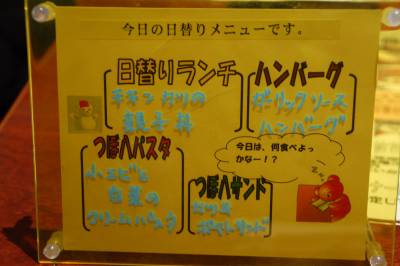 今日の日替りメニューです。
日替りランチ
チキンカツの
親子丼
ハンバーグ
ガーリックソース
ハンバーグ
つぼ八パスタ
小エビと
白菜の
クリームパスタ
つぼ八サンド
ポテトサンド
今日は、何食べよっ
かなー!?